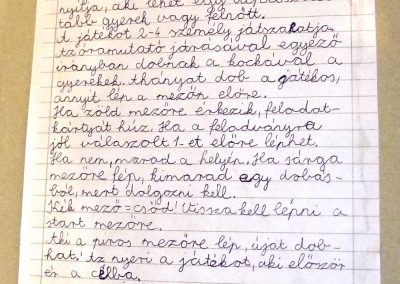 nyitja, aki lehet egy
több gyerek vagy felnőtt.
A játékot 2-4 személy játszhatja.
Az óramutató járásával egyező
irányban dobnak a kockával a
gyerekek. Ahányat dob a játékos,
annyit lép a mezőn előre.
Ha zöld mezőre érkezik, feladat-
kártyát húz. Ha a feladványra
jól válaszolt 1-et előre léphet.
Ha nem, marad a helyén. Ha sárga
mezőre lép, kimarad egy dobás-
ból, mert dolgozni kell.
Kék mező = csőd! Vissza kell lépni a
start mezőre.
Aki a piros mezőre lép, újat dob-
hat. Az nyeri a játékot, aki először
ér a célba.